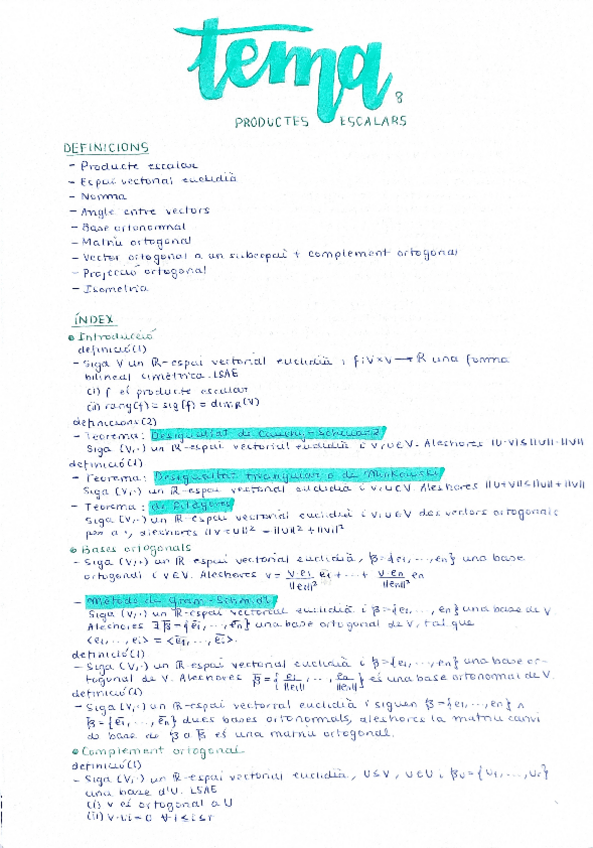 tema 8
PRODUCTES ESCALARS
DEFINICIONS
- Producte escalar
- Espai vectorial euclidià
- Norma
- Angle entre vectors
- Base ortonormal
- Matriu ortogonal
- Vector ortogonal a un subespai + complement ortogonal
- Projecció ortogonal
- Isometria
ÍNDEX
• Introducció
definició(1)
- Siga V un R-espai vectorial euclidià i f:V×V→R una forma
bilineal simètrica. LSAE
(i) f és producte escalar
(ii) rang(f) = sig(f) = dim_R(V)
definicions(2)
- Teorema: Desigualtat de Cauchy-Schwarz
Siga (V,·) un R-espai vectorial euclidià i v,u∈V. Aleshores |u·v|≤||u||·||v||
definició(1)
- Teorema: Desigualtat triangular o de Minkowski
Siga (V,·) un R-espai vectorial euclidià i v,u∈V. Aleshores ||u+v||≤||u||+||v||
- Teorema: de Pitàgores
Siga (V,·) un R-espai vectorial euclidià i v,u∈V dos vectors ortogonals
per a ·, aleshores ||v+u||² = ||u||² + ||v||²
• Bases ortogonals
- Siga (V,·) un R espai vectorial euclidià, β={e₁,...,eₙ} una base
ortogonal i v∈V. Aleshores v = v·e₁/||e₁||² e₁ + ··· + v·eₙ/||eₙ||² eₙ
- Mètode de Gram-Schmidt
Siga (V,·) un R-espai vectorial euclidià i β={e₁,...,eₙ} una base de V.
Aleshores ∃ β̄={ē₁,...,ēₙ} una base ortogonal de V, tal que
<e₁,...,eᵢ> = <ē₁,...,ēᵢ>.
definició(1)
- Siga (V,·) un R-espai vectorial euclidià i β={e₁,...,eₙ} una base or-
togonal de V. Aleshores β̄={e₁/||e₁||,...,eₙ/||eₙ||} és una base ortonormal de V.
definició(1)
- Siga (V,·) un R-espai vectorial euclidià i siguen β={e₁,...,eₙ} ∧
β̄={ē₁,...,ēₙ} dues bases ortonormals, aleshores la matriu canvi
de base de β a β̄ és una matriu ortogonal.
• Complement ortogonal
definició(1)
- Siga (V,·) un R-espai vectorial euclidià, U≤V, v∈U i βᵤ={u₁,...,uᵣ}
una base d'U. LSAE
(i) v és ortogonal a U
(ii) v·uᵢ=0 ∀ 1≤i≤r